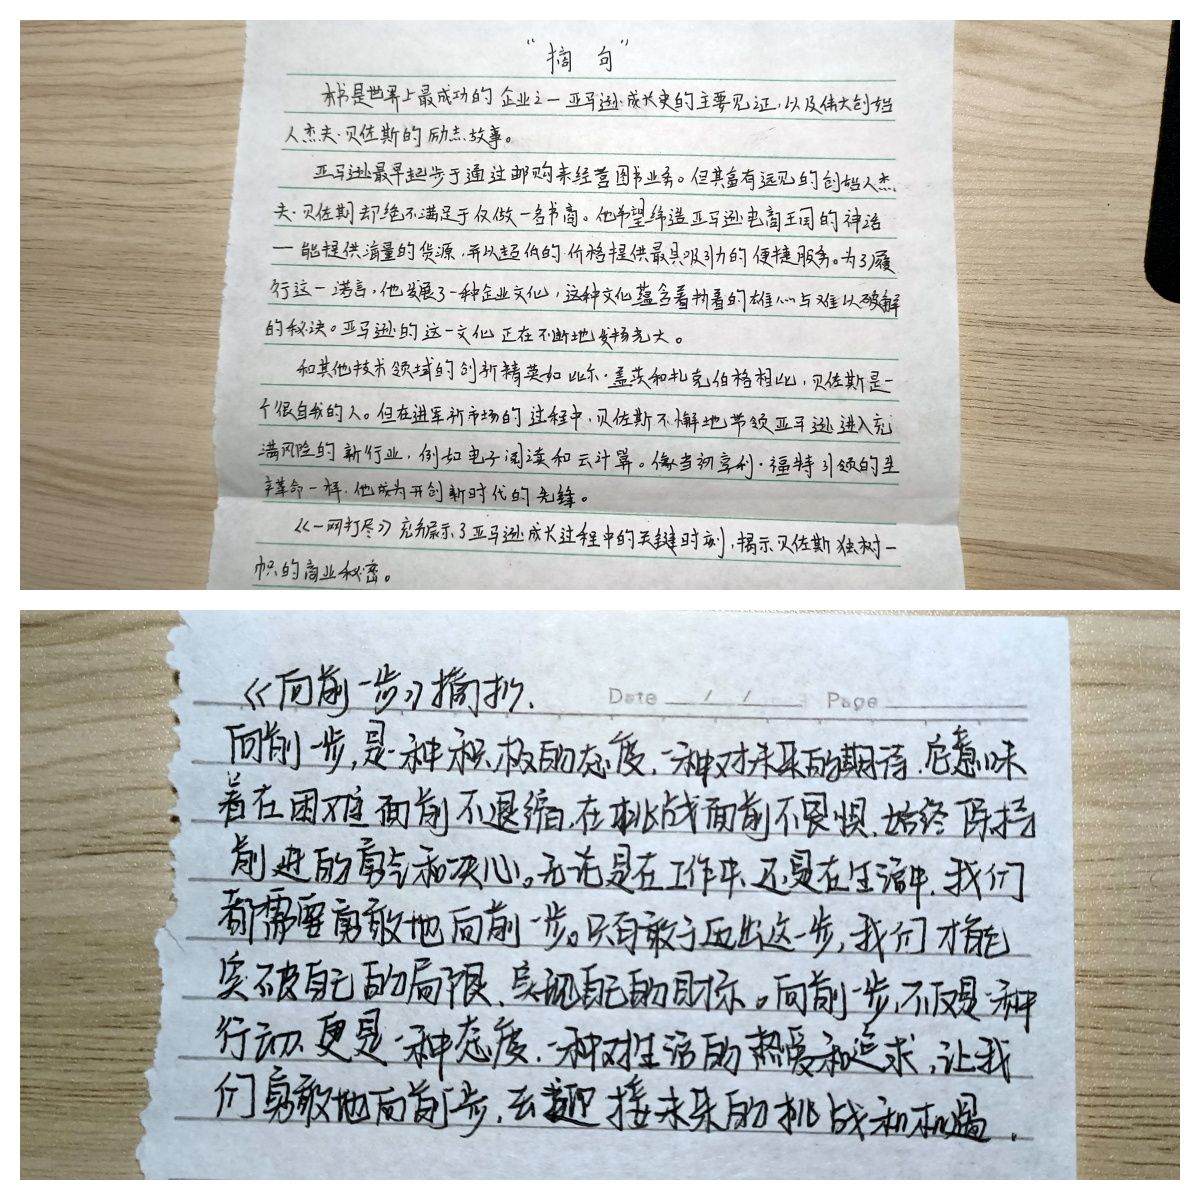 “摘 句”
本书是世界上最成功的企业之一亚马逊成长史的主要见证,以及伟大创始
人杰夫·贝佐斯的励志故事。
亚马逊最早起步于通过邮购来经营图书业务。但其富有远见的创始人杰
夫·贝佐斯却绝不满足于仅做一名书商。他希望缔造亚马逊电商王国的神话
一能提供海量的货源,并以超低的价格提供最具吸引力的便捷服务。为了履
行这一诺言,他发展了一种企业文化,这种文化蕴含着执着的雄心与难以破解
的秘诀。亚马逊的这一文化正在不断地发扬光大。
和其他技术领域的创新精英如比尔·盖茨和扎克伯格相比,贝佐斯是一
个很自我的人。但在进军新市场的过程中,贝佐斯不懈地带领亚马逊进入充
满风险的新行业,例如电子阅读和云计算。像当初亨利·福特引领的生
产革命一样,他成为开创新时代的先锋。
《一网打尽》充分展示了亚马逊成长过程中的关键时刻,揭示贝佐斯独树一
帜的商业秘密。
《向前一步》摘抄.
Date / / Page
向前一步,是一种积极的态度,一种对未来的期待.它意味
着在困难面前不退缩,在挑战面前不畏惧,始终保持
前进的勇气和决心。无论是在工作中,还是在生活中,我们
都需要勇敢地向前一步。只有敢于迈出这一步,我们才能
突破自己的局限,实现自己的目标。向前一步,不仅是一种
行动,更是一种态度,一种对生活的热爱和追求,让我
们勇敢地向前一步,去迎接未来的挑战和机遇.